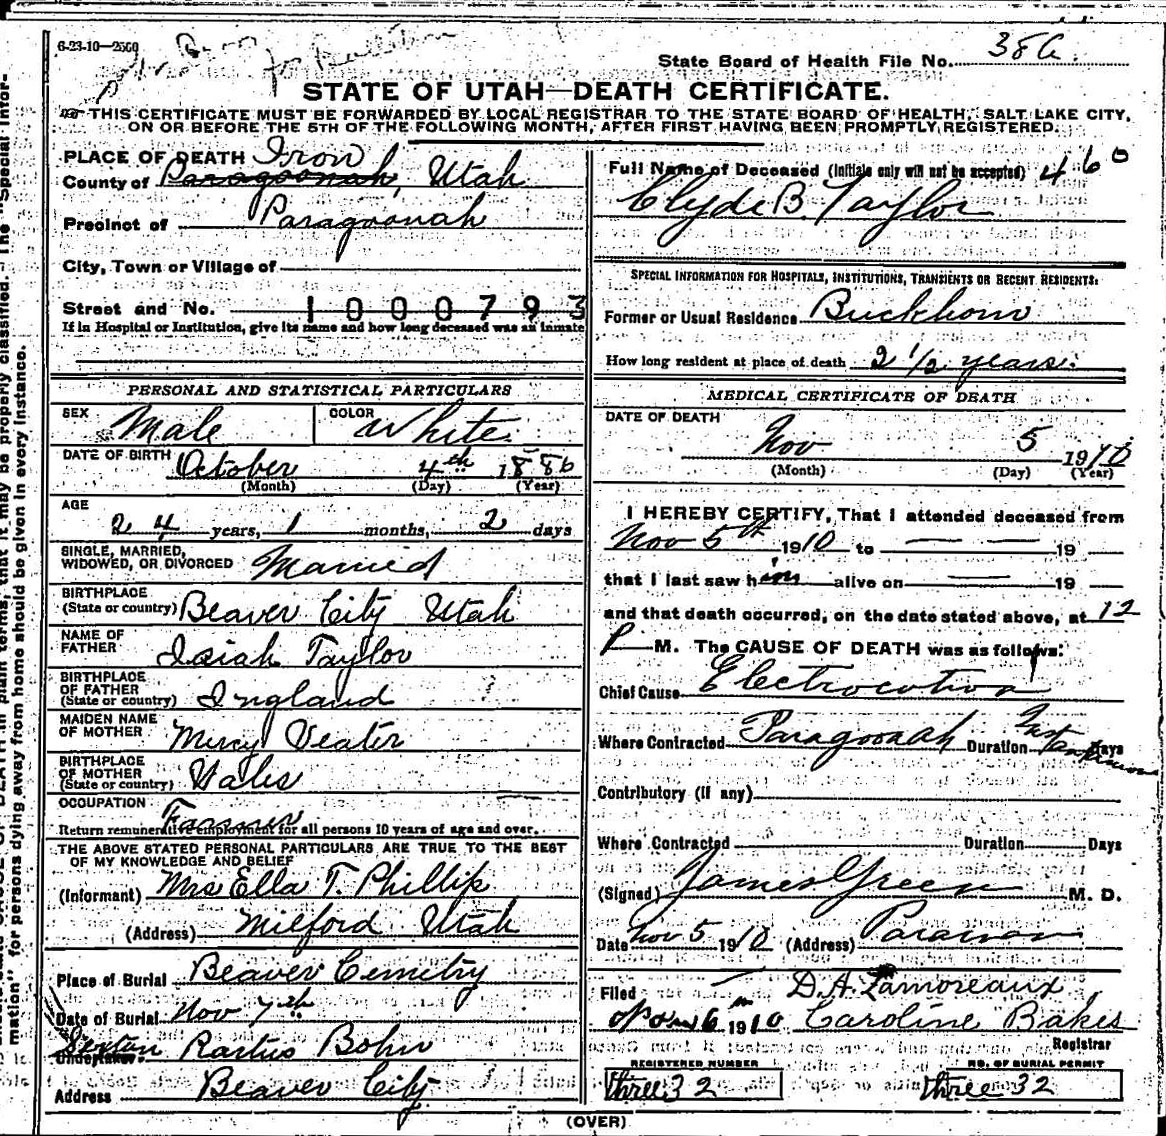 6-23-10—2500
for
State Board of Health File No. 38a.
STATE OF UTAH—DEATH CERTIFICATE.
THIS CERTIFICATE MUST BE FORWARDED BY LOCAL REGISTRAR TO THE STATE BOARD OF HEALTH, SALT LAKE CITY,
ON OR BEFORE THE 5TH OF THE FOLLOWING MONTH, AFTER FIRST HAVING BEEN PROMPTLY REGISTERED.
PLACE OF DEATH Iron
County of Paragoonah, Utah
Precinct of Paragoonah
City, Town or Village of
Street and No. 1000793
If in Hospital or Institution, give its name and how long deceased was an inmate
PERSONAL AND STATISTICAL PARTICULARS
SEX Male COLOR White.
DATE OF BIRTH October 4th 1886
(Month) (Day) (Year)
AGE
24 years, 1 months, 2 days
SINGLE, MARRIED,
WIDOWED, OR DIVORCED Married
BIRTHPLACE
(State or country) Beaver City Utah
NAME OF
FATHER Isiah Taylor
BIRTHPLACE
OF FATHER
(State or country) England
MAIDEN NAME
OF MOTHER Mercy Veater
BIRTHPLACE
OF MOTHER
(State or country) Wales
OCCUPATION Farmer
Return remunerative employment for all persons 10 years of age and over.
THE ABOVE STATED PERSONAL PARTICULARS ARE TRUE TO THE BEST
OF MY KNOWLEDGE AND BELIEF
(Informant) Mrs Ella T. Phillip
(Address) Milford Utah
Place of Burial Beaver Cemetry
Date of Burial Nov 7th
Sexton Undertaker Rastus Bohn
Address Beaver City
Full Name of Deceased (Initials only will not be accepted) 460
Clyde B. Taylor
SPECIAL INFORMATION FOR HOSPITALS, INSTITUTIONS, TRANSIENTS OR RECENT RESIDENTS:
Former or Usual Residence Buckhorn
How long resident at place of death 2 1/2 years.
MEDICAL CERTIFICATE OF DEATH
DATE OF DEATH
Nov 5 1910
(Month) (Day) (Year)
I HEREBY CERTIFY, That I attended deceased from
Nov 5th 1910 to 19
that I last saw him alive on 19
and that death occurred, on the date stated above, at 12
P M. The CAUSE OF DEATH was as follows:
Chief Cause Electrocution
Where Contracted Paragoonah Duration Days
Contributory (If any)
Where Contracted Duration Days
(Signed) James Green M. D.
Date Nov 5 1910 (Address) Parawan
Filed D. A. Lamoreaux
Nov 6 1910 Caroline Bakes
Registrar
REGISTERED NUMBER NO. OF BURIAL PERMIT
three 32 three 32
(OVER)
mation" for persons dying away from home should be given in every instance.